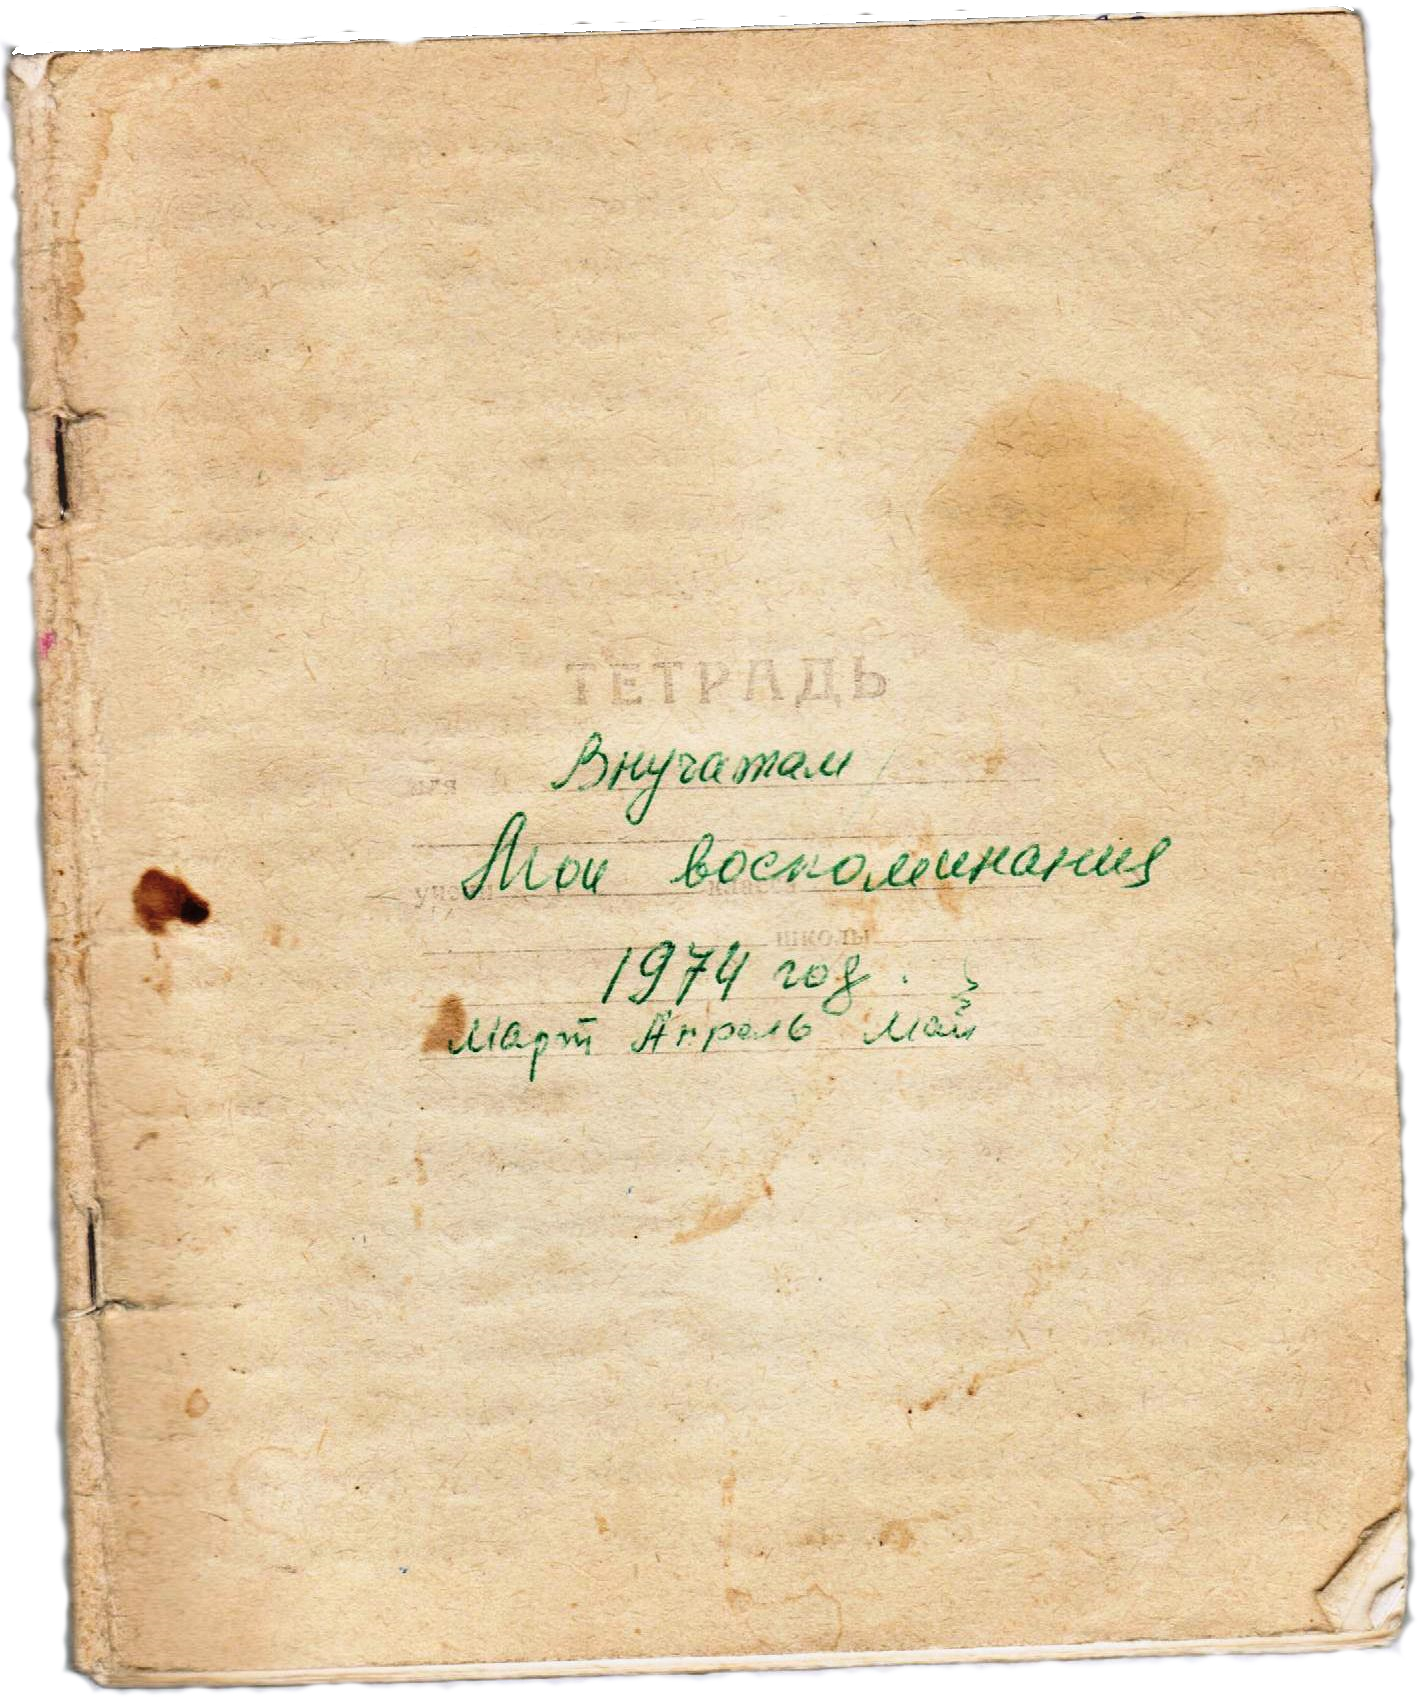 ТЕТРАДЬ
для Внучатам
Мои воспоминания
учени класса
школы
1974 год.
Март Апрель Май